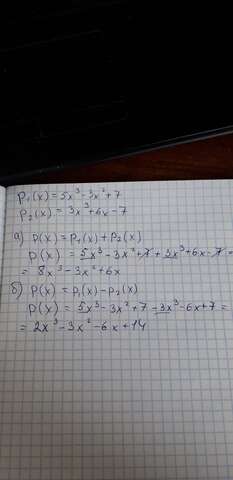 P₁(x) = 5x³-3x²+7
P₂(x) = 3x³+6x-7
а) P(x) = P₁(x)+P₂(x)
P(x) = 5x³-3x²+7+3x³+6x-7 =
= 8x³-3x²+6x
б) P(x) = P₁(x)-P₂(x)
P(x) = 5x³-3x²+7-3x³-6x+7 =
= 2x³-3x²-6x+14